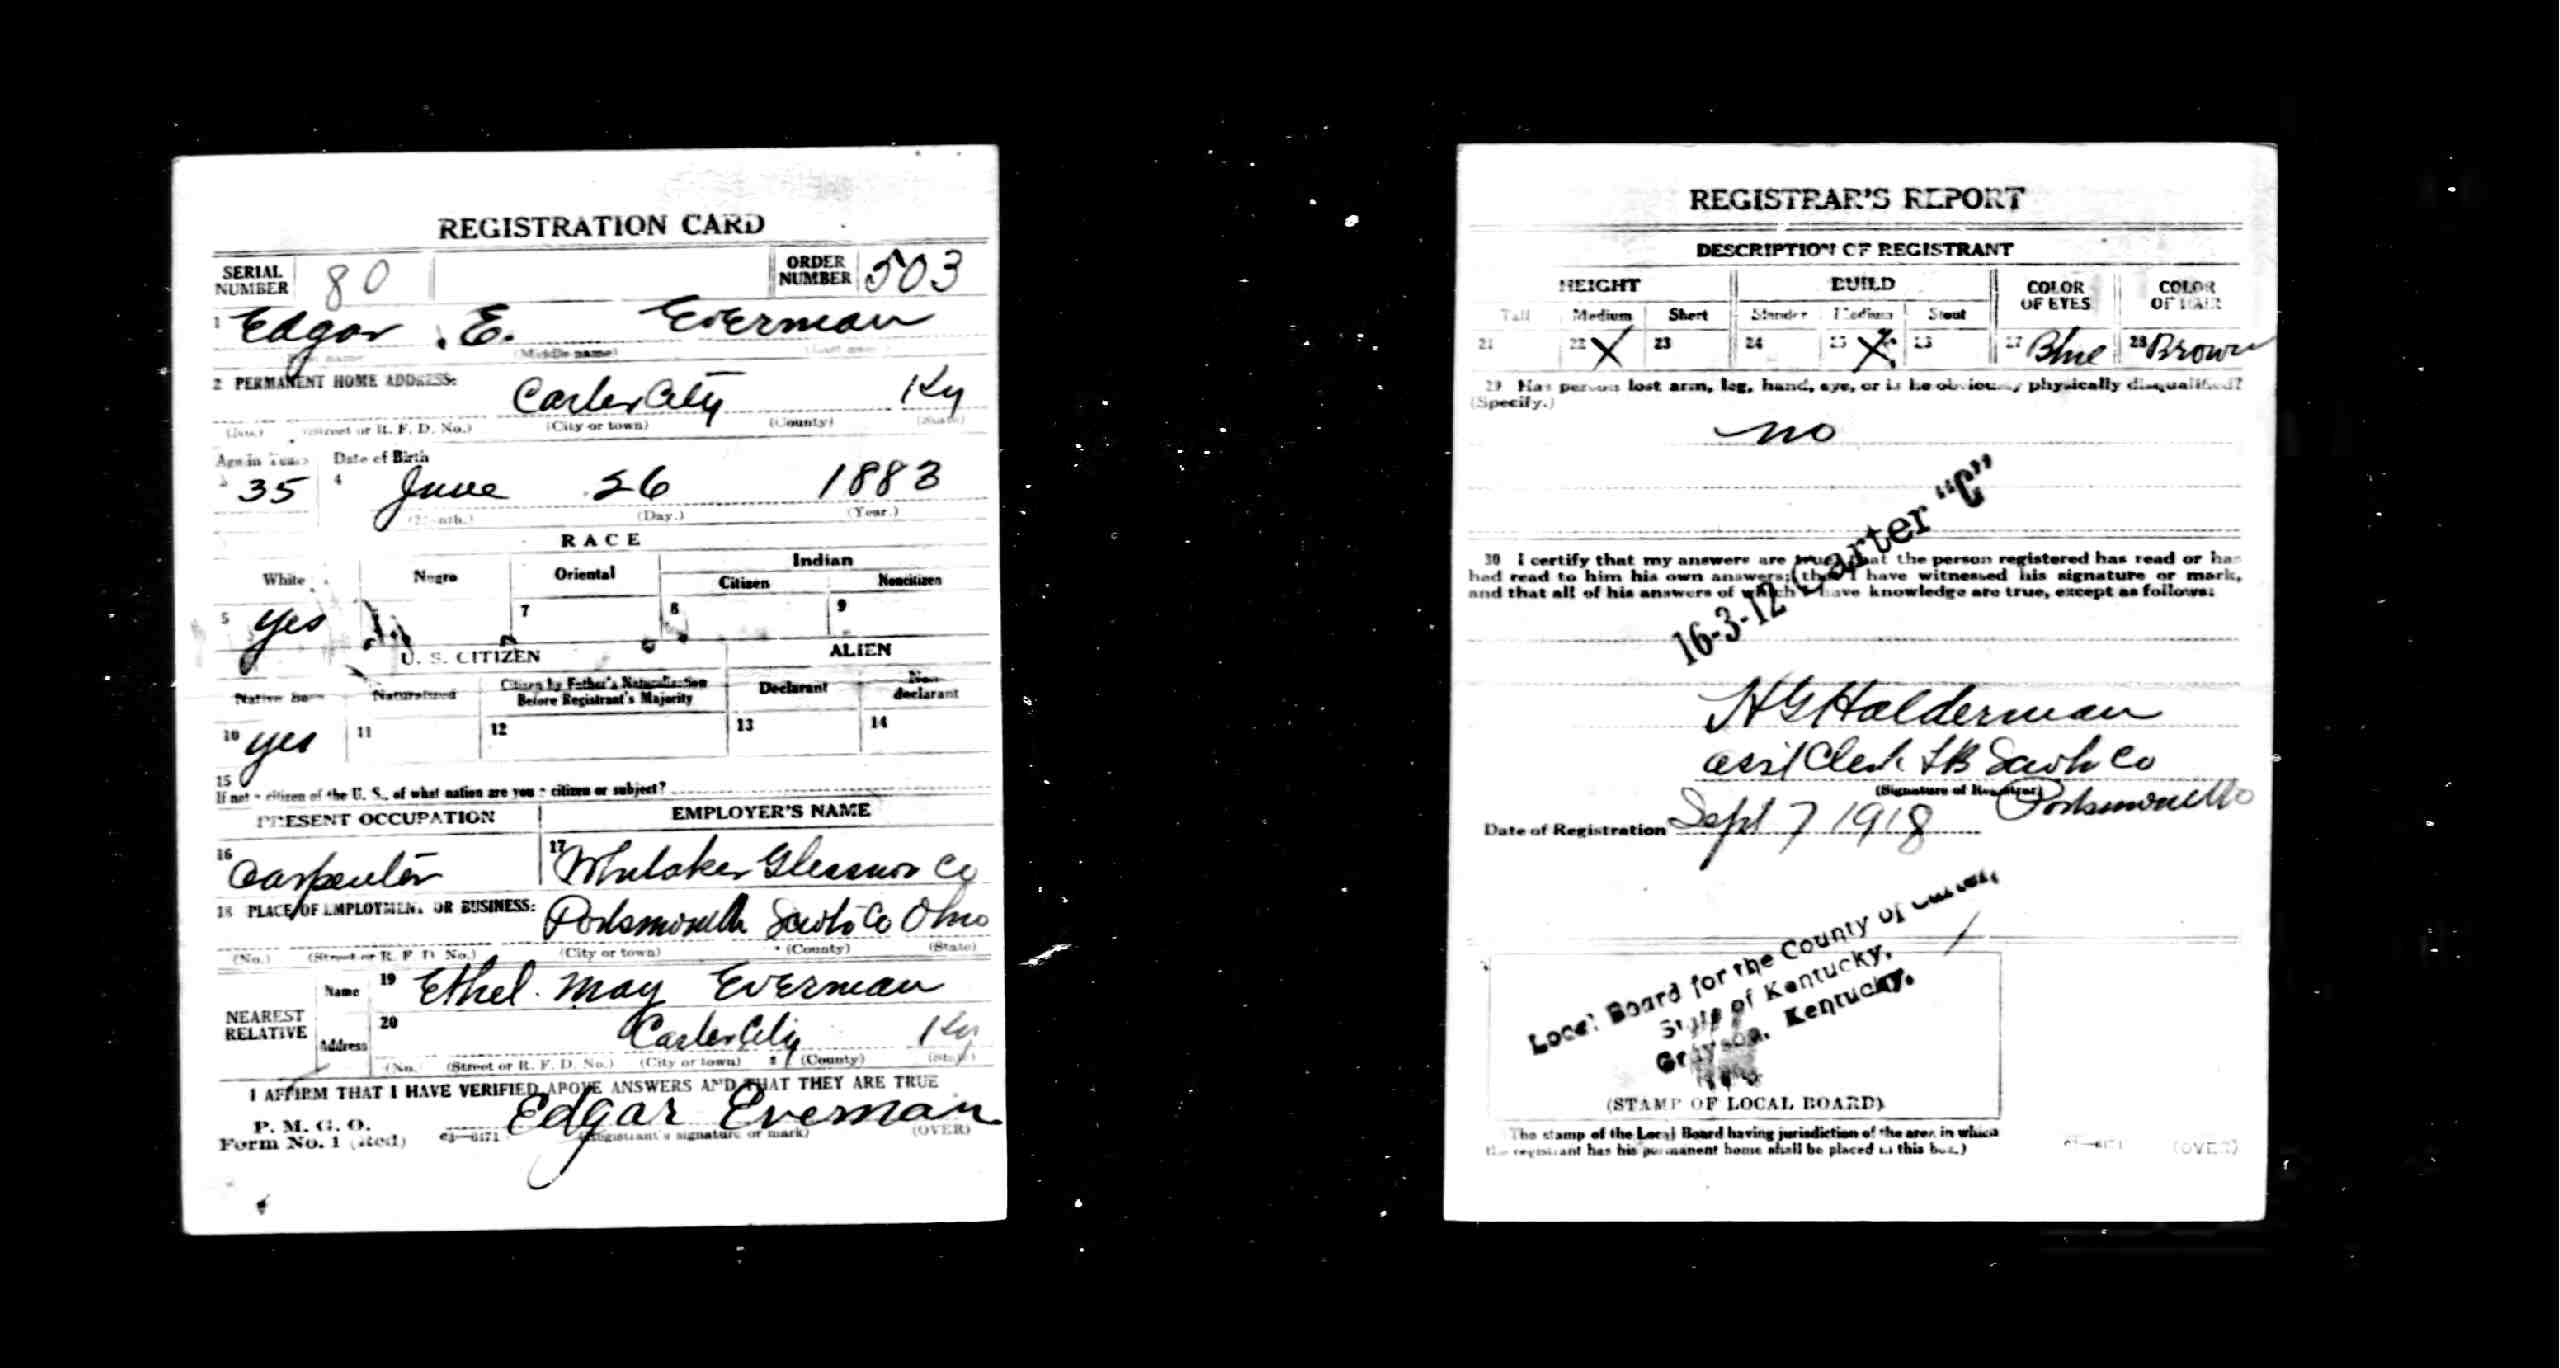 REGISTRATION CARD
SERIAL NUMBER 80 ORDER NUMBER 503
1 Edgar E. Everman
(Middle name)
2 PERMANENT HOME ADDRESS:
Carter City Ky
(Street or R. F. D. No.) (City or town) (County) (State)
Age in Years Date of Birth
35 4 June 26 1883
(Month.) (Day.) (Year.)
RACE
White Negro Oriental Indian
Citizen Noncitizen
5 yes 7 8 9
U. S. CITIZEN ALIEN
Native Born Naturalized Citizen by Father's Naturalization Before Registrant's Majority Declarant Non-declarant
10 yes 11 12 13 14
15
If not a citizen of the U. S., of what nation are you a citizen or subject?
PRESENT OCCUPATION EMPLOYER'S NAME
16 Carpenter 17 Whitaker Glessner Co
18 PLACE OF EMPLOYMENT OR BUSINESS:
Portsmouth Scioto Co Ohio
(No.) (Street or R. F. D. No.) (City or town) (County) (State)
NEAREST RELATIVE
Name 19 Ethel May Everman
Address 20 Carter City Ky
(No.) (Street or R. F. D. No.) (City or town) (County) (State)
I AFFIRM THAT I HAVE VERIFIED ABOVE ANSWERS AND THAT THEY ARE TRUE
P. M. G. O.
Form No. 1 (Red) 03—6171 Edgar Everman
(Registrant's signature or mark) (OVER)
REGISTRAR'S REPORT
DESCRIPTION OF REGISTRANT
HEIGHT BUILD COLOR OF EYES COLOR OF HAIR
Tall Medium Short Slender Medium Stout
21 22 X 23 24 25 X 26 27 Blue 28 Brown
29 Has person lost arm, leg, hand, eye, or is he obviously physically disqualified?
(Specify.)
no
30 I certify that my answers are true; that the person registered has read or has
had read to him his own answers; that I have witnessed his signature or mark,
and that all of his answers of which I have knowledge are true, except as follows:
16-3-12 Carter "C"
H G Halderman
asst Clerk LB Scioto Co
(Signature of Registrar) Portsmouth O
Date of Registration Sept 7 1918
Local Board for the County of Carter
State of Kentucky,
Grayson, Kentucky.
(STAMP OF LOCAL BOARD)
The stamp of the Local Board having jurisdiction of the area in which
the registrant has his permanent home shall be placed in this box.)
03—6171 (OVER)